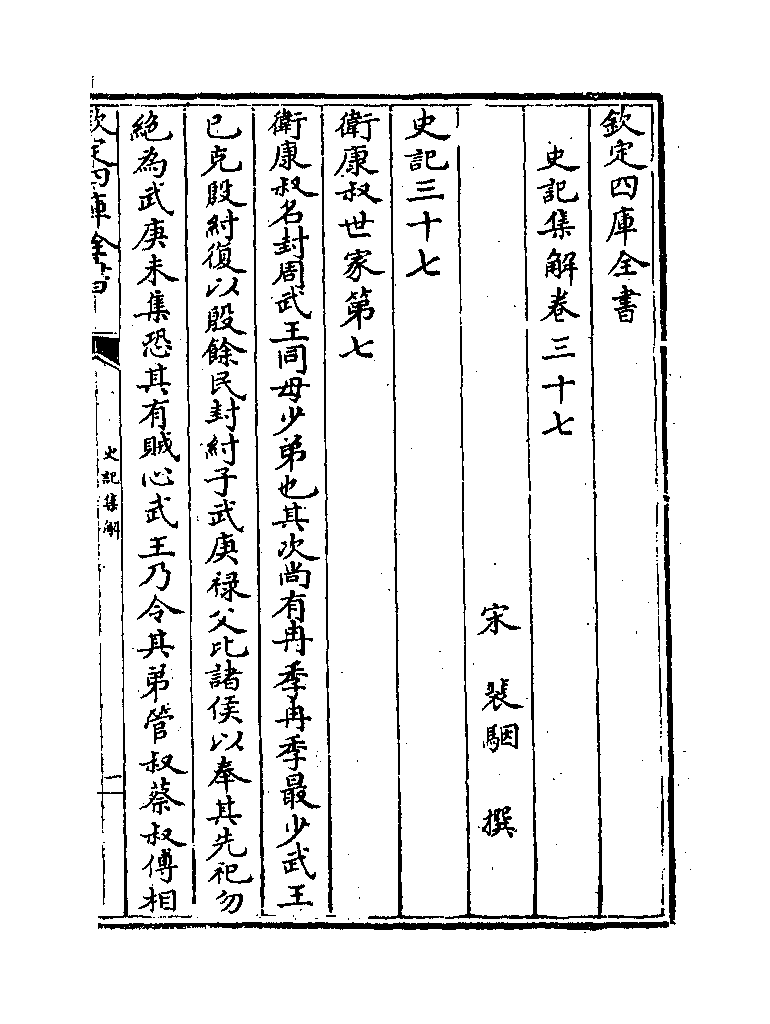 欽定四庫全書
史記集解卷三十七
宋 裴駰 撰
史記三十七
衛康叔世家第七
衛康叔名封周武王同母少弟也其次尚有冉季冉季最少武王
已克殷紂復以殷餘民封紂子武庚禄父比諸侯以奉其先祀勿
絶為武庚未集恐其有賊心武王乃令其弟管叔蔡叔傅相
欽定四庫全書
史記集解
一